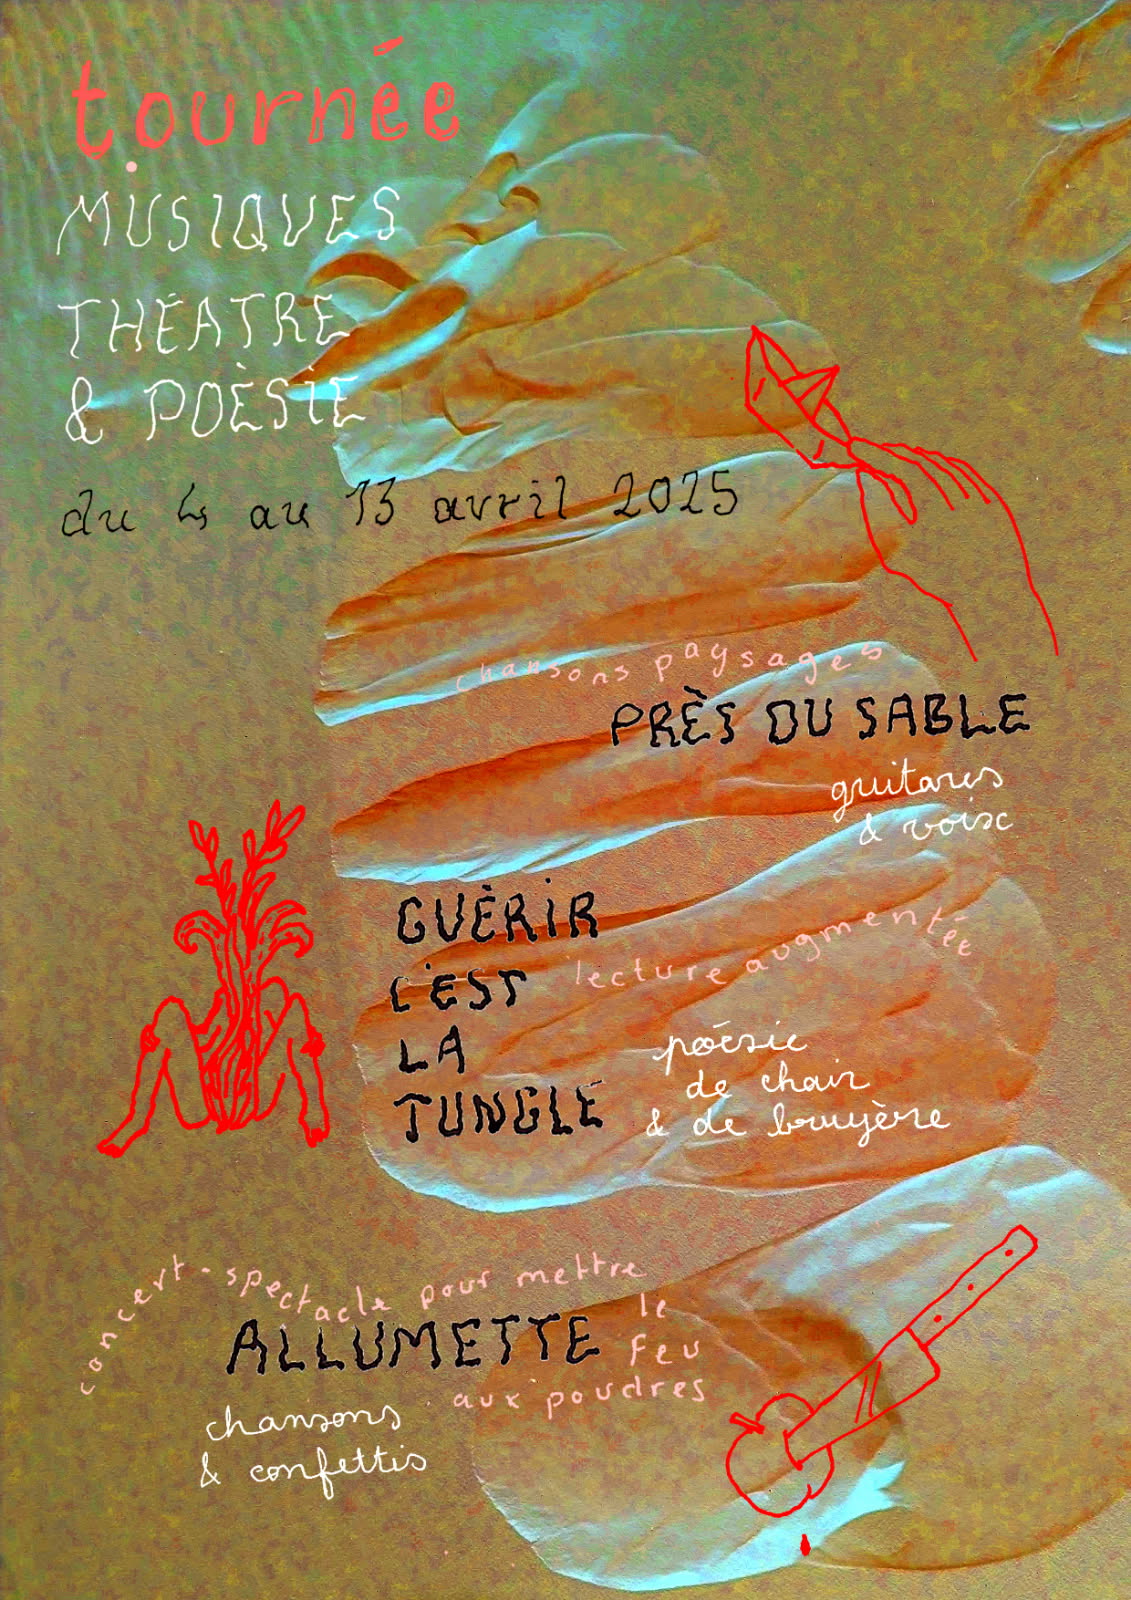 tournée
MUSIQUES
THÉATRE
& POÈSIE
du 4 au 13 avril 2025
chansons paysages
PRÈS DU SABLE
guitares
& voix
GUÈRIR
C'EST
LA
TUNGLE
lecture augmentée
poésie
de chair
& de bruyère
concert-spectacle pour mettre
le
feu
aux poudres
ALLUMETTE
chansons
& confettis